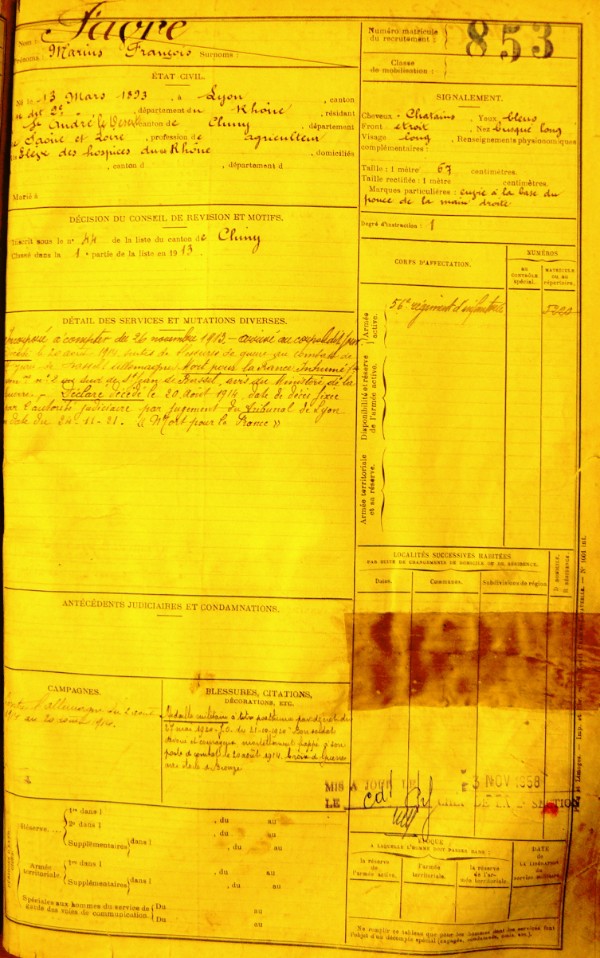 Nom : Favre
Prénoms : Marius François Surnoms :
Numéro matricule
du recrutement :
853
Classe
de mobilisation :
ÉTAT CIVIL.
Né le 13 Mars 1893, à Lyon, canton
, département du Rhône, résidant
St André le Désert, canton de Cluny, département
Saône et Loire, profession de agriculteur
Elève des hospices du Rhône, domiciliés
, canton d , département d
Marié à
SIGNALEMENT.
Cheveux Chatains Yeux bleus
Front étroit, Nez busqué long
Visage long, Renseignements physionomiques
complémentaires :
Taille : 1 mètre 67 centimètres.
Taille rectifiée : 1 mètre centimètres.
Marques particulières : à la base du
pouce de la main droite
Degré d'instruction : 1
DÉCISION DU CONSEIL DE REVISION ET MOTIFS.
Inscrit sous le n° 44 de la liste du canton de Cluny
Classé dans la 1e partie de la liste en 1913.
CORPS D'AFFECTATION.
NUMÉROS
AU CONTRÔLE spécial.
MATRICULE OU AU répertoire.
Armée active.
56e régiment d'infanterie
Disponibilité et réserve de l'armée active.
Armée territoriale et sa réserve.
DÉTAIL DES SERVICES ET MUTATIONS DIVERSES.
Incorporé à compter du 26 novembre 1913 - arrivé au corps le dit jour
le 20 août 1914, suites de blessures de guerre au combat de
Mort pour la France Inhumé
n° 2 sud de St Jean de Bassel, avis du Ministère de la
Guerre. - Déclaré décédé le 20 août 1914 date de décès fixée
par l'autorité judiciaire par jugement du tribunal de Lyon
date du 24-11-21. "Mort pour la France"
LOCALITÉS SUCCESSIVES HABITÉES.
PAR SUITE DE CHANGEMENTS DE DOMICILE OU DE RÉSIDENCE.
Dates.
Communes.
Subdivisions de région
D. DOMICILE,
R. RÉSIDENCE.
ANTÉCÉDENTS JUDICIAIRES ET CONDAMNATIONS.
CAMPAGNES.
Contre l'allemagne du 2 août
1914 au 20 août 1914.
BLESSURES, CITATIONS,
DÉCORATIONS, ETC.
Médaille militaire à titre posthume
mai 1920 - J.O. du Bon soldat
dévoué et courageux mortellement frappé à son
poste de combat le 20 août 1914. Croix de guerre
étoile de bronze
MIS A JOUR LE 3 NOV 1958
LE CHEF DE LA SECTION
Réserve....
1re dans l , du au
2e dans l , du au
Supplémentaires dans l , du au
Armée
territoriale.
1re dans l , du au
Supplémentaires dans l , du au
Spéciales aux hommes du service de
garde des voies de communication.
Du au
Du au
ÉPOQUE
A LAQUELLE L'HOMME DOIT PASSER DANS :
la réserve
de l'armée active.
l'armée
territoriale.
la réserve
de l'armée territoriale.
DATE
de la
LIBÉRATION
du
service militaire.